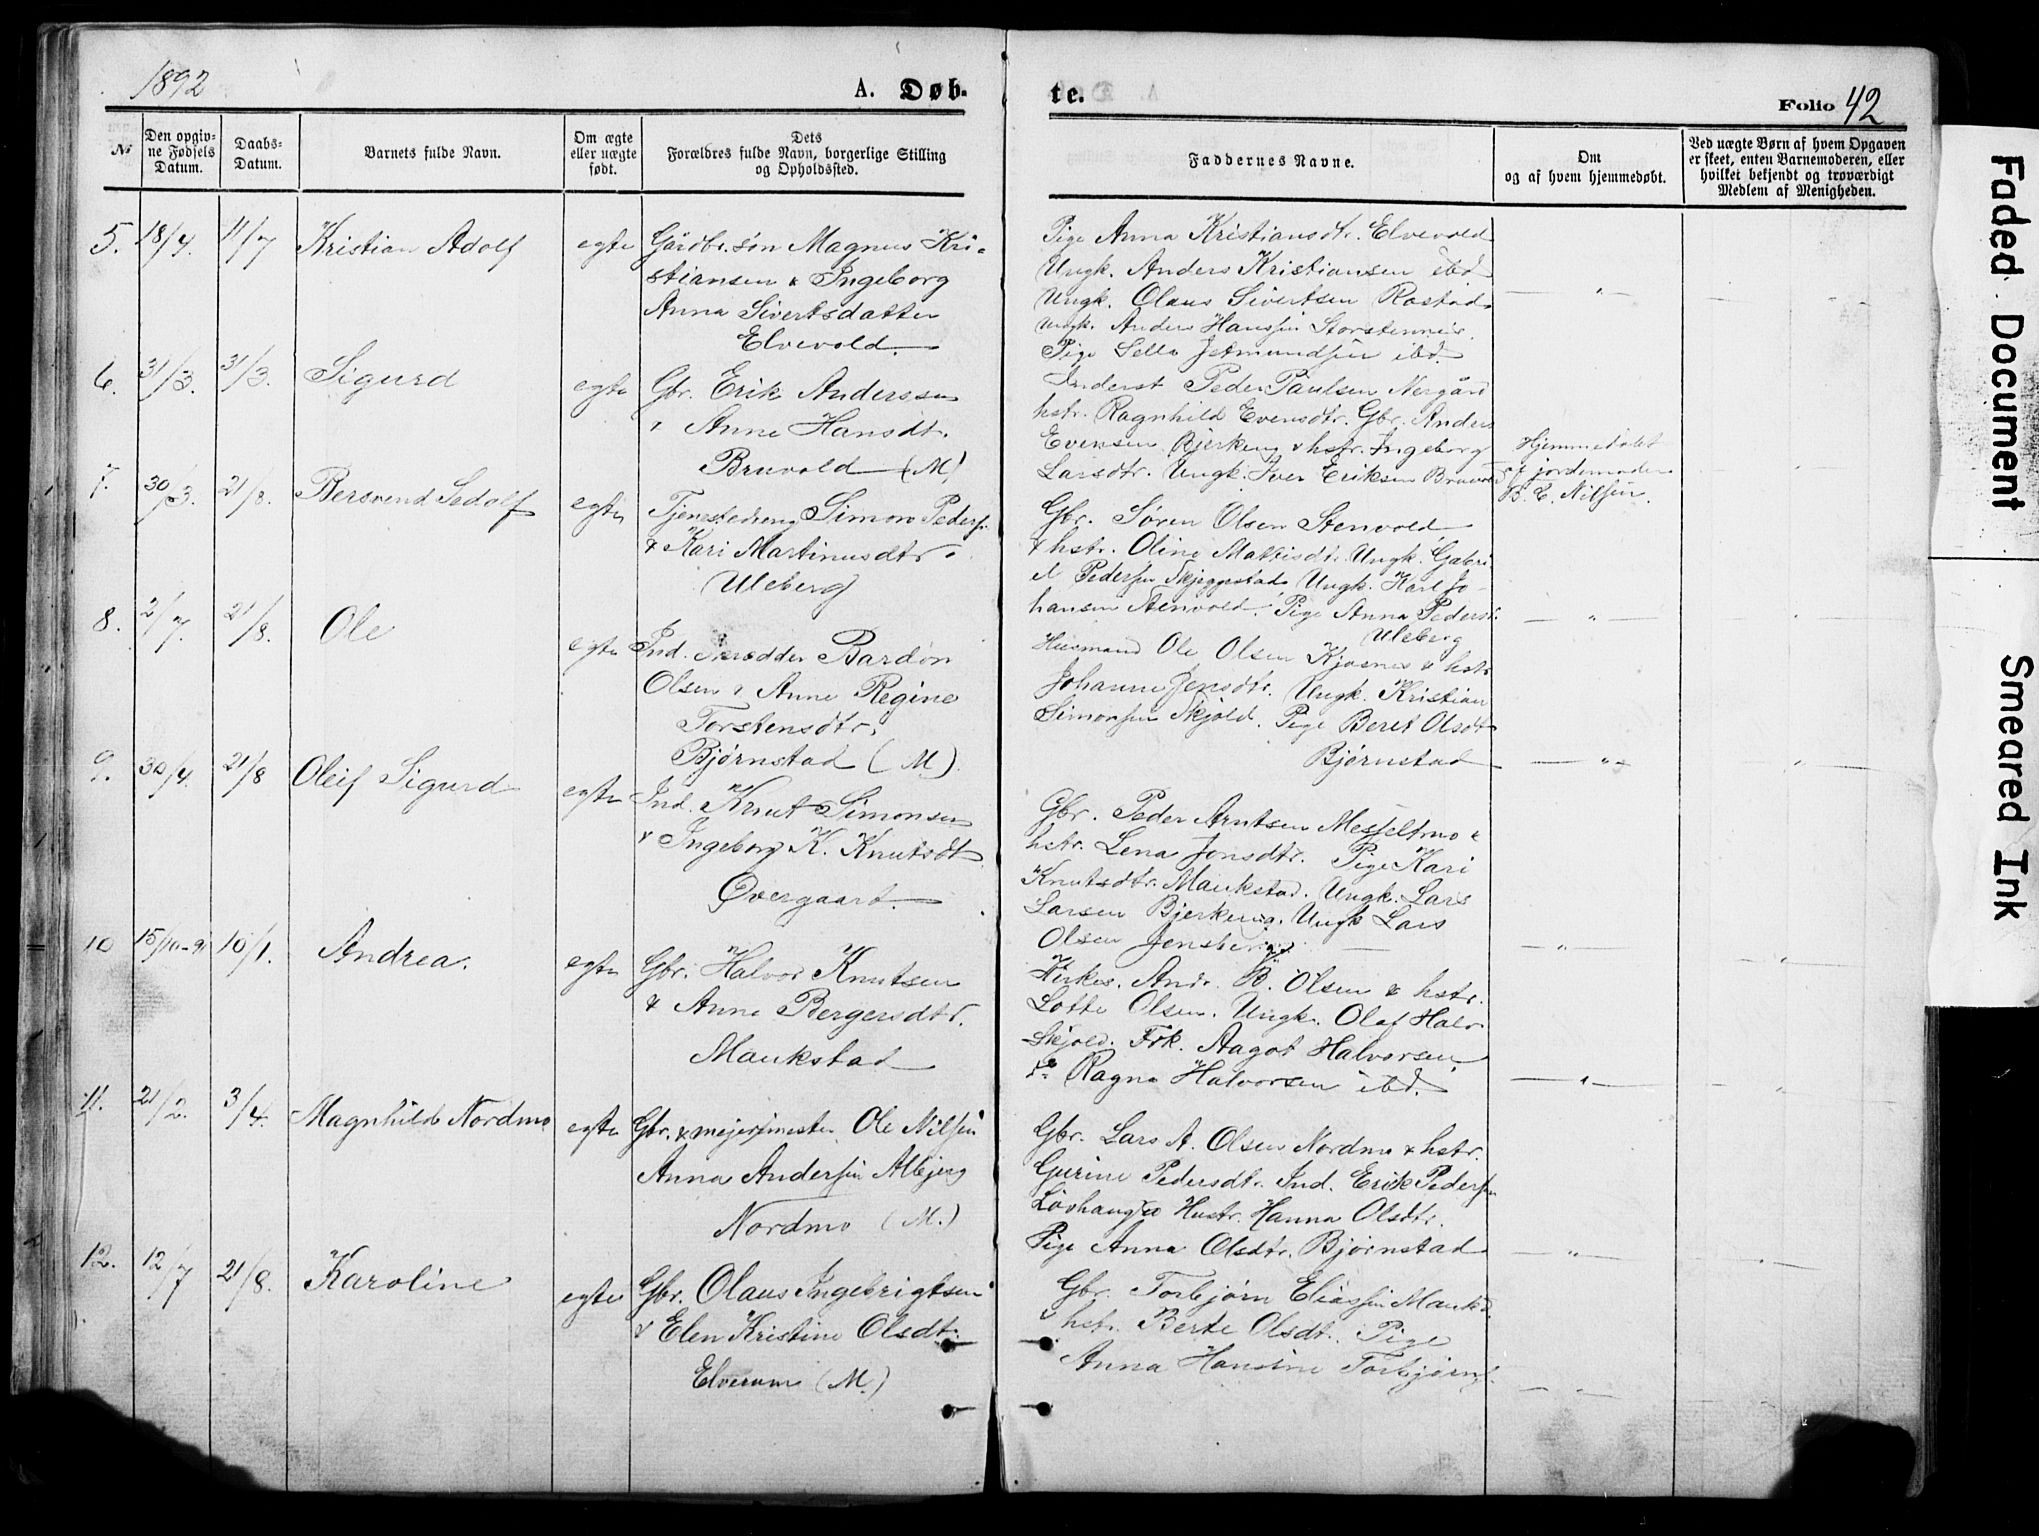 1892
A. Døb-
te.
Folio 42
No
Den opgiv-
ne Fødsels
Datum.
Daabs-
Datum.
Barnets fulde Navn.
Om ægte
eller uægte
født.
Dets
Forældres fulde Navn, borgerlige Stilling
og Opholdssted.
Faddernes Navne.
Om
og af hvem hjemmedøbt.
Ved uægte Børn af hvem Opgaven
er skeet, enten Barnemoderen, eller
hvilket bekjendt og troværdigt
Medlem af Menigheden.
5. 18/4. 11/7 Kristian Adolf egte Gårdbr. søn Magnus Kri-
stiansen & Ingeborg
Anna Sivertsdatter
Elvevold.
Pige Anna Kristiansdtr. Elvevold
Ungk. Anders Kristiansen ibd
Ungk. Olaus Sivertsen Rostad
Ungk. Anders Hanssen
Pige ibd.
6. 31/3. 31/3. Sigurd egte Gbr. Erik Anderssen
Anne Hansdt.
Bruvold (M)
Inderst Peder Paulsen Nergård
hstr. Ragnhild Evensdtr. Gbr. Anders
Evensen Bjerkeng & hstr. Ingeborg
Larsdtr. Ungk. Iver Eriksen Bruvold
Hjemmedøbt
af jordemoder
B. C. Nilsen.
7. 30/3. 21/8. Bersvend Sedolf egte Tjenestedreng Simon Peders.
& Kari Martinusdtr.
Uleberg
Gbr. Søren Olsen Stenvold
& hstr. Oline Mathisdtr. Ungk. Gabri
el Pedersen Skjeggestad, Ungk. Karl Jo-
hansen Stenvold. Pige Anna Pedersd.
Uleberg
8. 2/7. 21/8. Ole egte Ind. Skrædder Bardon
Olsen & Anne Regine
Torstensdtr.
Bjørnstad (M).
Husmand Ole Olsen Kjosnes & hstr
Johanne Jensdtr. Ungk. Kristian
Simonsen Skjold. Pige Beret Olsdt
Bjørnstad
9. 30/4. 21/8 Oleif Sigurd egte Ind. Knut Simonsen
& Ingeborg K. Knutsdt.
Øvergaard.
Gbr. Peder Arntsen Messeltmo &
hstr. Lena Jonsdtr. Pige Kari
Knutsdtr. Maukstad. Ungk. Lars
Larsen Bjerkeng. Ungk Lars
Olsen Jensberg.
10 15/10-91 10/1. Andrea. egte Gbr. Halvor Knutsen
& Anne Bergersdtr.
Maukstad
Kirkes. Andr. B. Olsen & hstr.
Lotte Olsen. Ungk. Olaf Halv.
Skjold. Frk. Aagot Halvorsen
Ragna Halvorsen ibd.
11. 21/2. 3/4. Magnhild Nordmo egte Gbr. & mejerimester Ole Nilsen
Anna Andersen Albjerg
Nordmo (M.)
Gbr. Lars A. Olsen Nordmo & hstr.
Gurine Pedersdt. Ind. Erik Pedersen
Løvhaug & Hustr. Hanna Olsdtr.
Pige Anna Olsdtr. Bjørnstad
12. 12/7 21/8. Karoline egte Gbr. Olaus Ingebrigtsen
& Elen Kristine Olsdt.
Elverum (M.)
Gbr. Torbjørn Eliassen Maukst.
& hstr. Berte Olsdt. Pige
Anna Hansine Torbjørns.
Faded Document
Smeared Ink